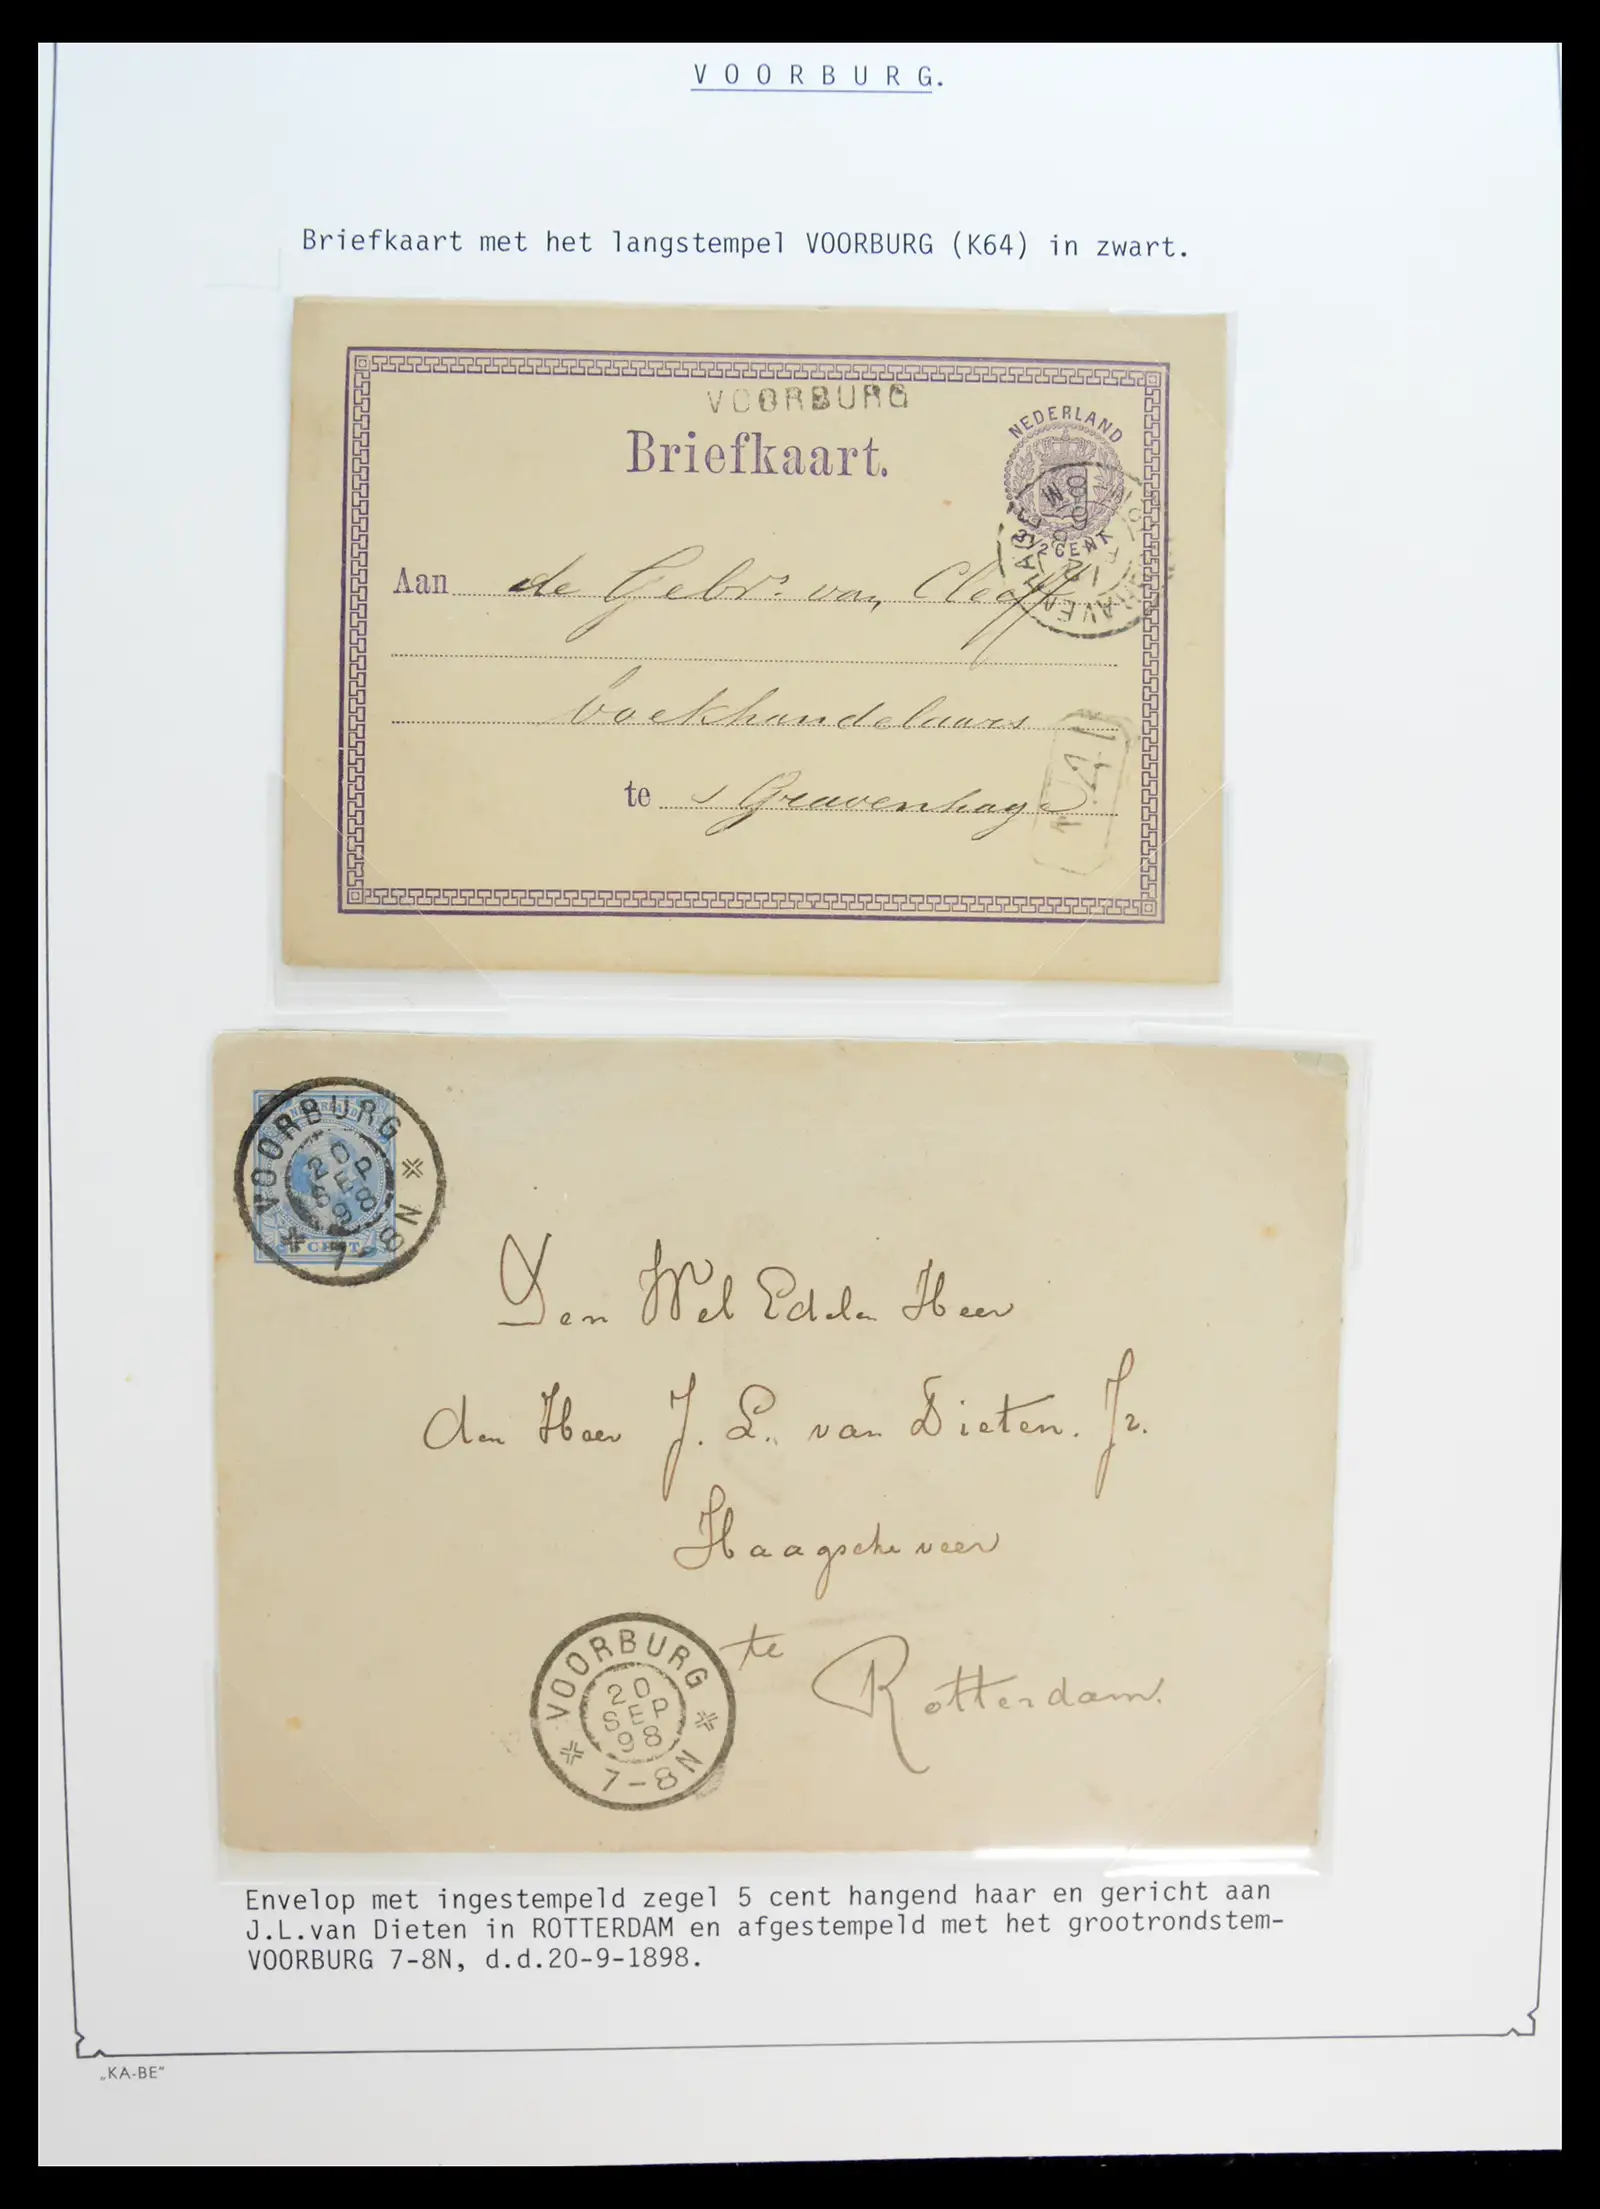 VOORBURG.
Briefkaart met het langstempel VOORBURG (K64) in zwart.
VOORBURG
Briefkaart.
NEDERLAND
2½ CENT
Aan de Gebrs. van Cleeff
boekhandelaars
te s Gravenhage
VOORBURG
20 SEP 98
7-8N
CENT
Den Wel Edelen Heer
den Heer J. L. van Dieten. Jr.
Haagsche veer
te
Rotterdam.
VOORBURG
20 SEP 98
7-8N
Envelop met ingestempeld zegel 5 cent hangend haar en gericht aan
J.L.van Dieten in ROTTERDAM en afgestempeld met het grootrondstem-
VOORBURG 7-8N, d.d.20-9-1898.
„KA-BE"